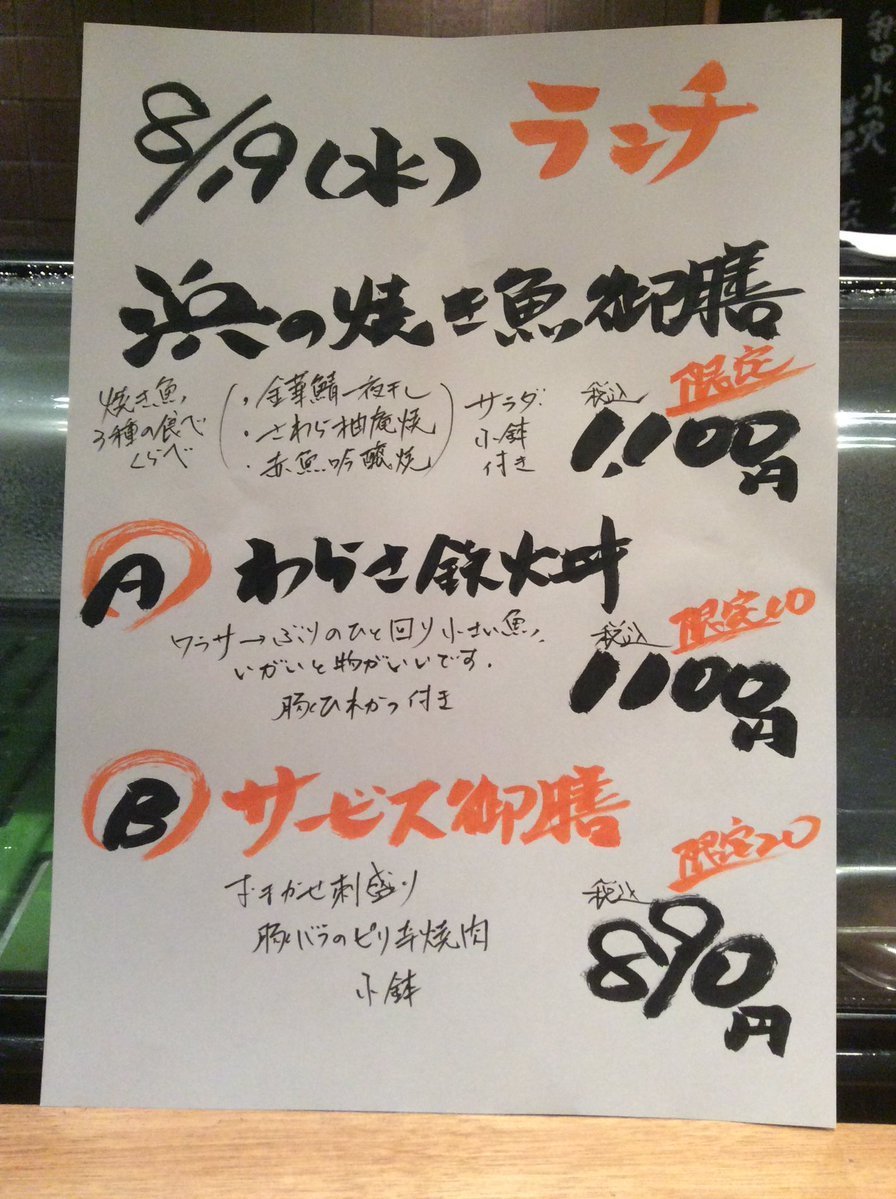 8/19(水) ランチ
浜の焼き魚御膳
限定
焼き魚、
3種の食べ
くらべ
・金華鯖一夜干し
・さわら柚庵焼
・赤魚吟醸焼
サラダ
小鉢
付き
税込
1,100円
A わらさ鉄火丼
限定10
ワラサ→ぶりのひと回り小さい魚、
いがいと物がいいです。
豚ひれかつ付き
税込
1100円
B サービス御膳
限定20
おまかせ刺盛り
豚バラのピリ辛焼肉
小鉢
税込
890円